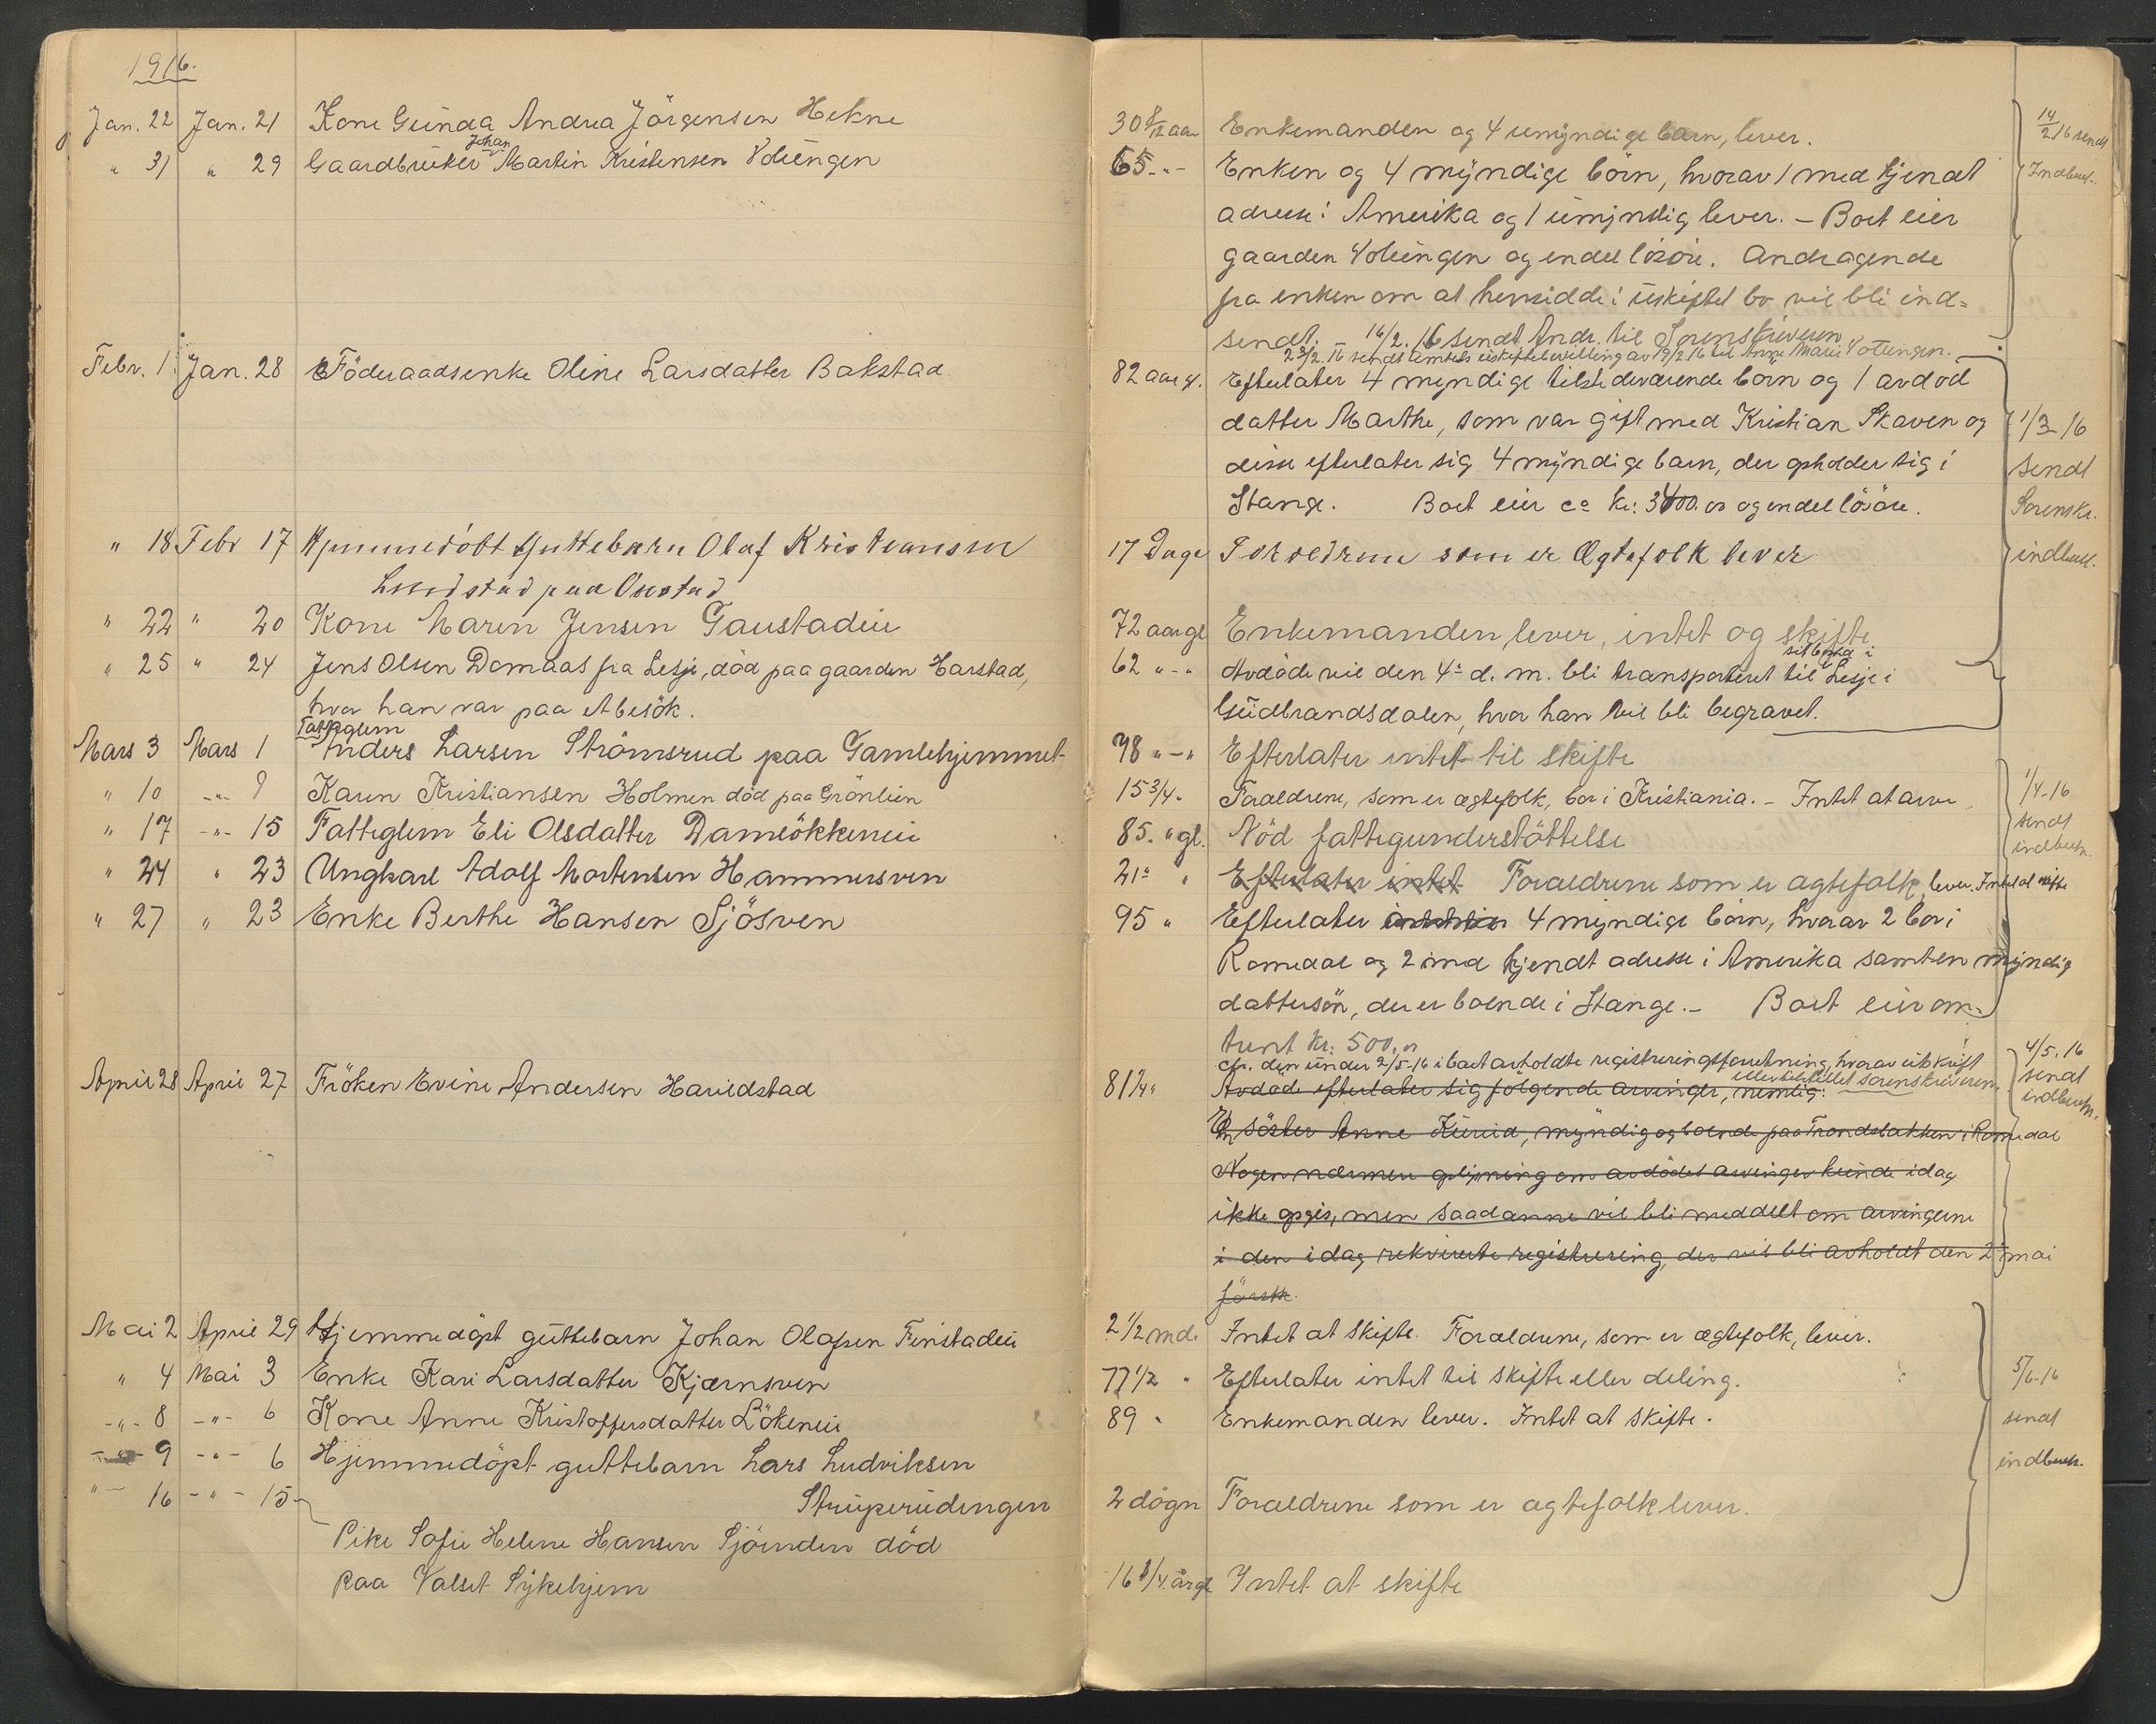 1916.
Jan. 22 Jan. 21 Kone Gunda Andrea Jörgensen Hekne
" 31 " 29 Gaardbruker Johan Martin Kristensen Votungen
Febr. 1. Jan. 28 Föderaadsenke Oline Larsdatter Bakstad
" 18 Febr 17 Hjemmedöbt Guttebarn Olaf Kristiansen
paa
" 22 " 20 Kone Maren Jensen Gaustadeie
" 25 " 24 Jens Olsen Domaas fra Lesje, död paa gaarden Harstad,
hvor han var paa et besök.
Fattiglem
Mars 3 Mars 1 Anders Larsen Strömsrud paa Gamlehjemmet
" 10 -"- 9 Karen Kristiansen Holmen död paa Grönlien
" 17 -"- 15 Fattiglem Eli Olsdatter Damlökkeneie
" 24 " 23 Ungkarl Adolf Mortensen Hammersven
" 27 " 23 Enke Berthe Hansen Sjösven
April 28 April 27 Fröken Evine Andersen Harildstad
Mai 2 April 29 Hjemmedöpt guttebarn Johan Olafsen Finstadeie
" 4 Mai 3 Enke Kari Larsdatter Kjernsven
-"- 8 -"- 6 Kone Anne Kristoffersdatter Lökeneie
-"- 9 -"- 6 Hjemmedöpt guttebarn Lars Ludviksen
"- 16 -"- 15 Struperudengen
Pike Sofie Helene Hansen Sjöenden död
paa Valset Sykehjem
30 8/12 aar Enkemanden og 4 umyndige barn, lever.
14/2 16 sendt
65 -"- Enken og 4 myndige börn, hvorav 1 med kjendt
Indberet.
adresse i Amerika og 1 umyndig lever. – Boet eier
gaarden Votungen og endel lösöre. Andragende
fra enken om at hensidde i uskiftet bo vil bli ind-
sendt. 16/2. 16 sendt Andr. til Sorenskriveren
23/2. 16 sendt amtets uskiftebevilling av 19/2 16 til Anne Marie Votungen.
82 aar g. Efterlater 4 myndige tilstedeværende börn og 1 avdöd
datter Marthe, som var gift med Kristian Skaven og
1/3-16
disse efterlater sig 4 myndige barn, der opholder sig i
sendt
Stange. Boet eier ca kr: 3400.00 og endel lösöre.
Sorenskr.
17 Dage Foreldrene som er Ægtefolk lever
indberet.
72 aar gl Enkemanden lever, intet og skifte
sit i
62 "-" Avdöde vil den 4de d. m. bli transporteret til Lesje i
Gudbrandsdalen, hvor han vil bli begravet.
78 "-" Efterlater intet til skifte
15 3/4 " Foraeldrene, som er ægtefolk, bor i Kristiania. – Intet at arve
1/4-16
sendt
85. " gl. Nöd fattigunderstöttelse
indberetn.
21 " Efterlater intet Foraeldrene som er ægtefolk, lever. Intet at skifte
95 " Efterlater 4 myndige börn, hvorav 2 bor i
Romedal og 2 med kjendt adresse i Amerika samt en myndig
dattersön, der er boende i Stange. – Boet eier om-
trent kr: 500.00
cfr. den under 2/5-16 i boet avholdte registreringsforretning, hvorav utskrift
4/5. 16
er tilstillet sorenskriveren.
sendt
81 1/4 " Avdöde efterlater sig fölgende arvinger, nemlig:
indberetn.
En söster Anne Kurud, myndig og boende paa Trondsbakken i Romedal
Nogen nærmere oplysning om avdödes arvinger kunde idag
ikke opgis, men saadanne vil bli meddelt om arvingerne
i den idag rekvirerte registrering, der vil bli avholdt den 2 mai
förstk.
2 1/2 md. Intet at skifte. Foraeldrene, som er ægtefolk, lever.
77 1/2 " Efterlater intet til skifte eller deling.
5/6-16
89 " Enkemanden lever. Intet at skifte.
sendt
indberetn.
2 dögn Foraeldrene som er ægtefolk lever.
16 3/4 årgl Intet at skifte